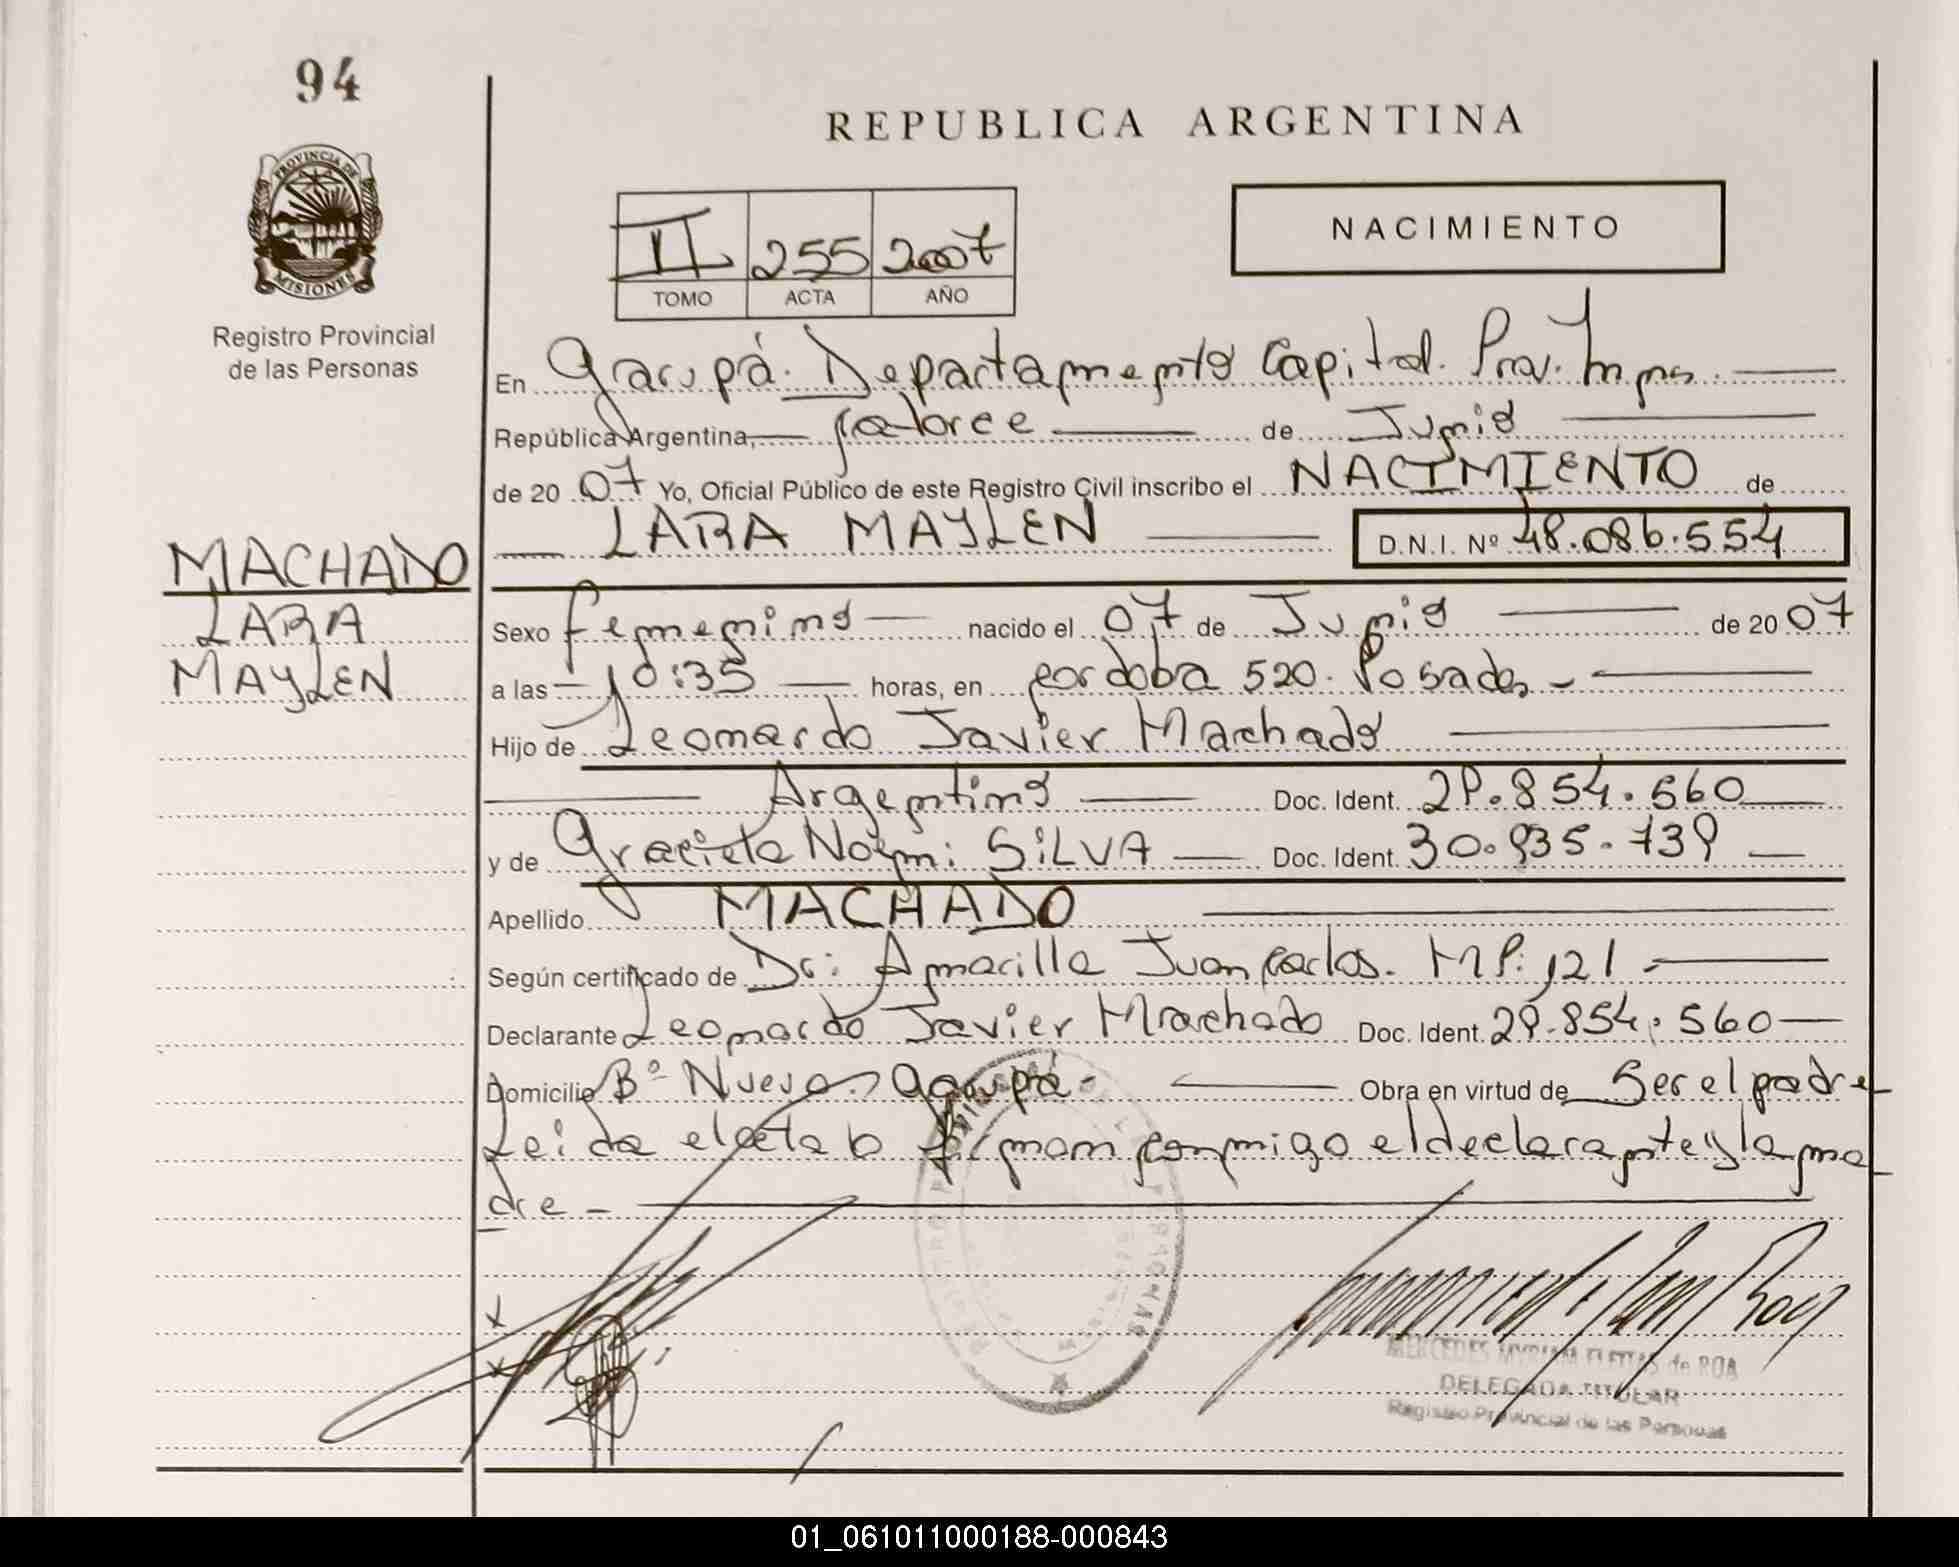 94
REPUBLICA ARGENTINA
PROVINCIA DE
MISIONES
Registro Provincial
de las Personas
II 255 2007
TOMO ACTA AÑO
NACIMIENTO
En Garupá. Departamento Capital. Prov. Mnes.
República Argentina, catorce de Junio
de 2007 Yo, Oficial Público de este Registro Civil inscribo el NACIMIENTO de
LARA MAYLEN D.N.I. Nº 48.086.554
MACHADO
LARA
MAYLEN
Sexo femenino nacido el 07 de Junio de 2007
a las 10:35 horas, en cordoba 520. Posadas
Hijo de Leonardo Javier Machado
Argentino Doc. Ident. 29.854.560
y de Graciela Noemi SILVA Doc. Ident. 30.935.739
Apellido MACHADO
Según certificado de Dr: Amarilla Juan Carlos. MP: 121
Declarante Leonardo Javier Machado Doc. Ident. 29.854.560
Domicilio Bº Nuevo. Garupá- Obra en virtud de Ser el padre
Leida el acta lo firman conmigo el declarante y la ma
dre -
x
x
MERCEDES MYRIAM FLEITAS de ROA
DELEGADA TITULAR
Registro Provincial de las Personas
01_061011000188-000843